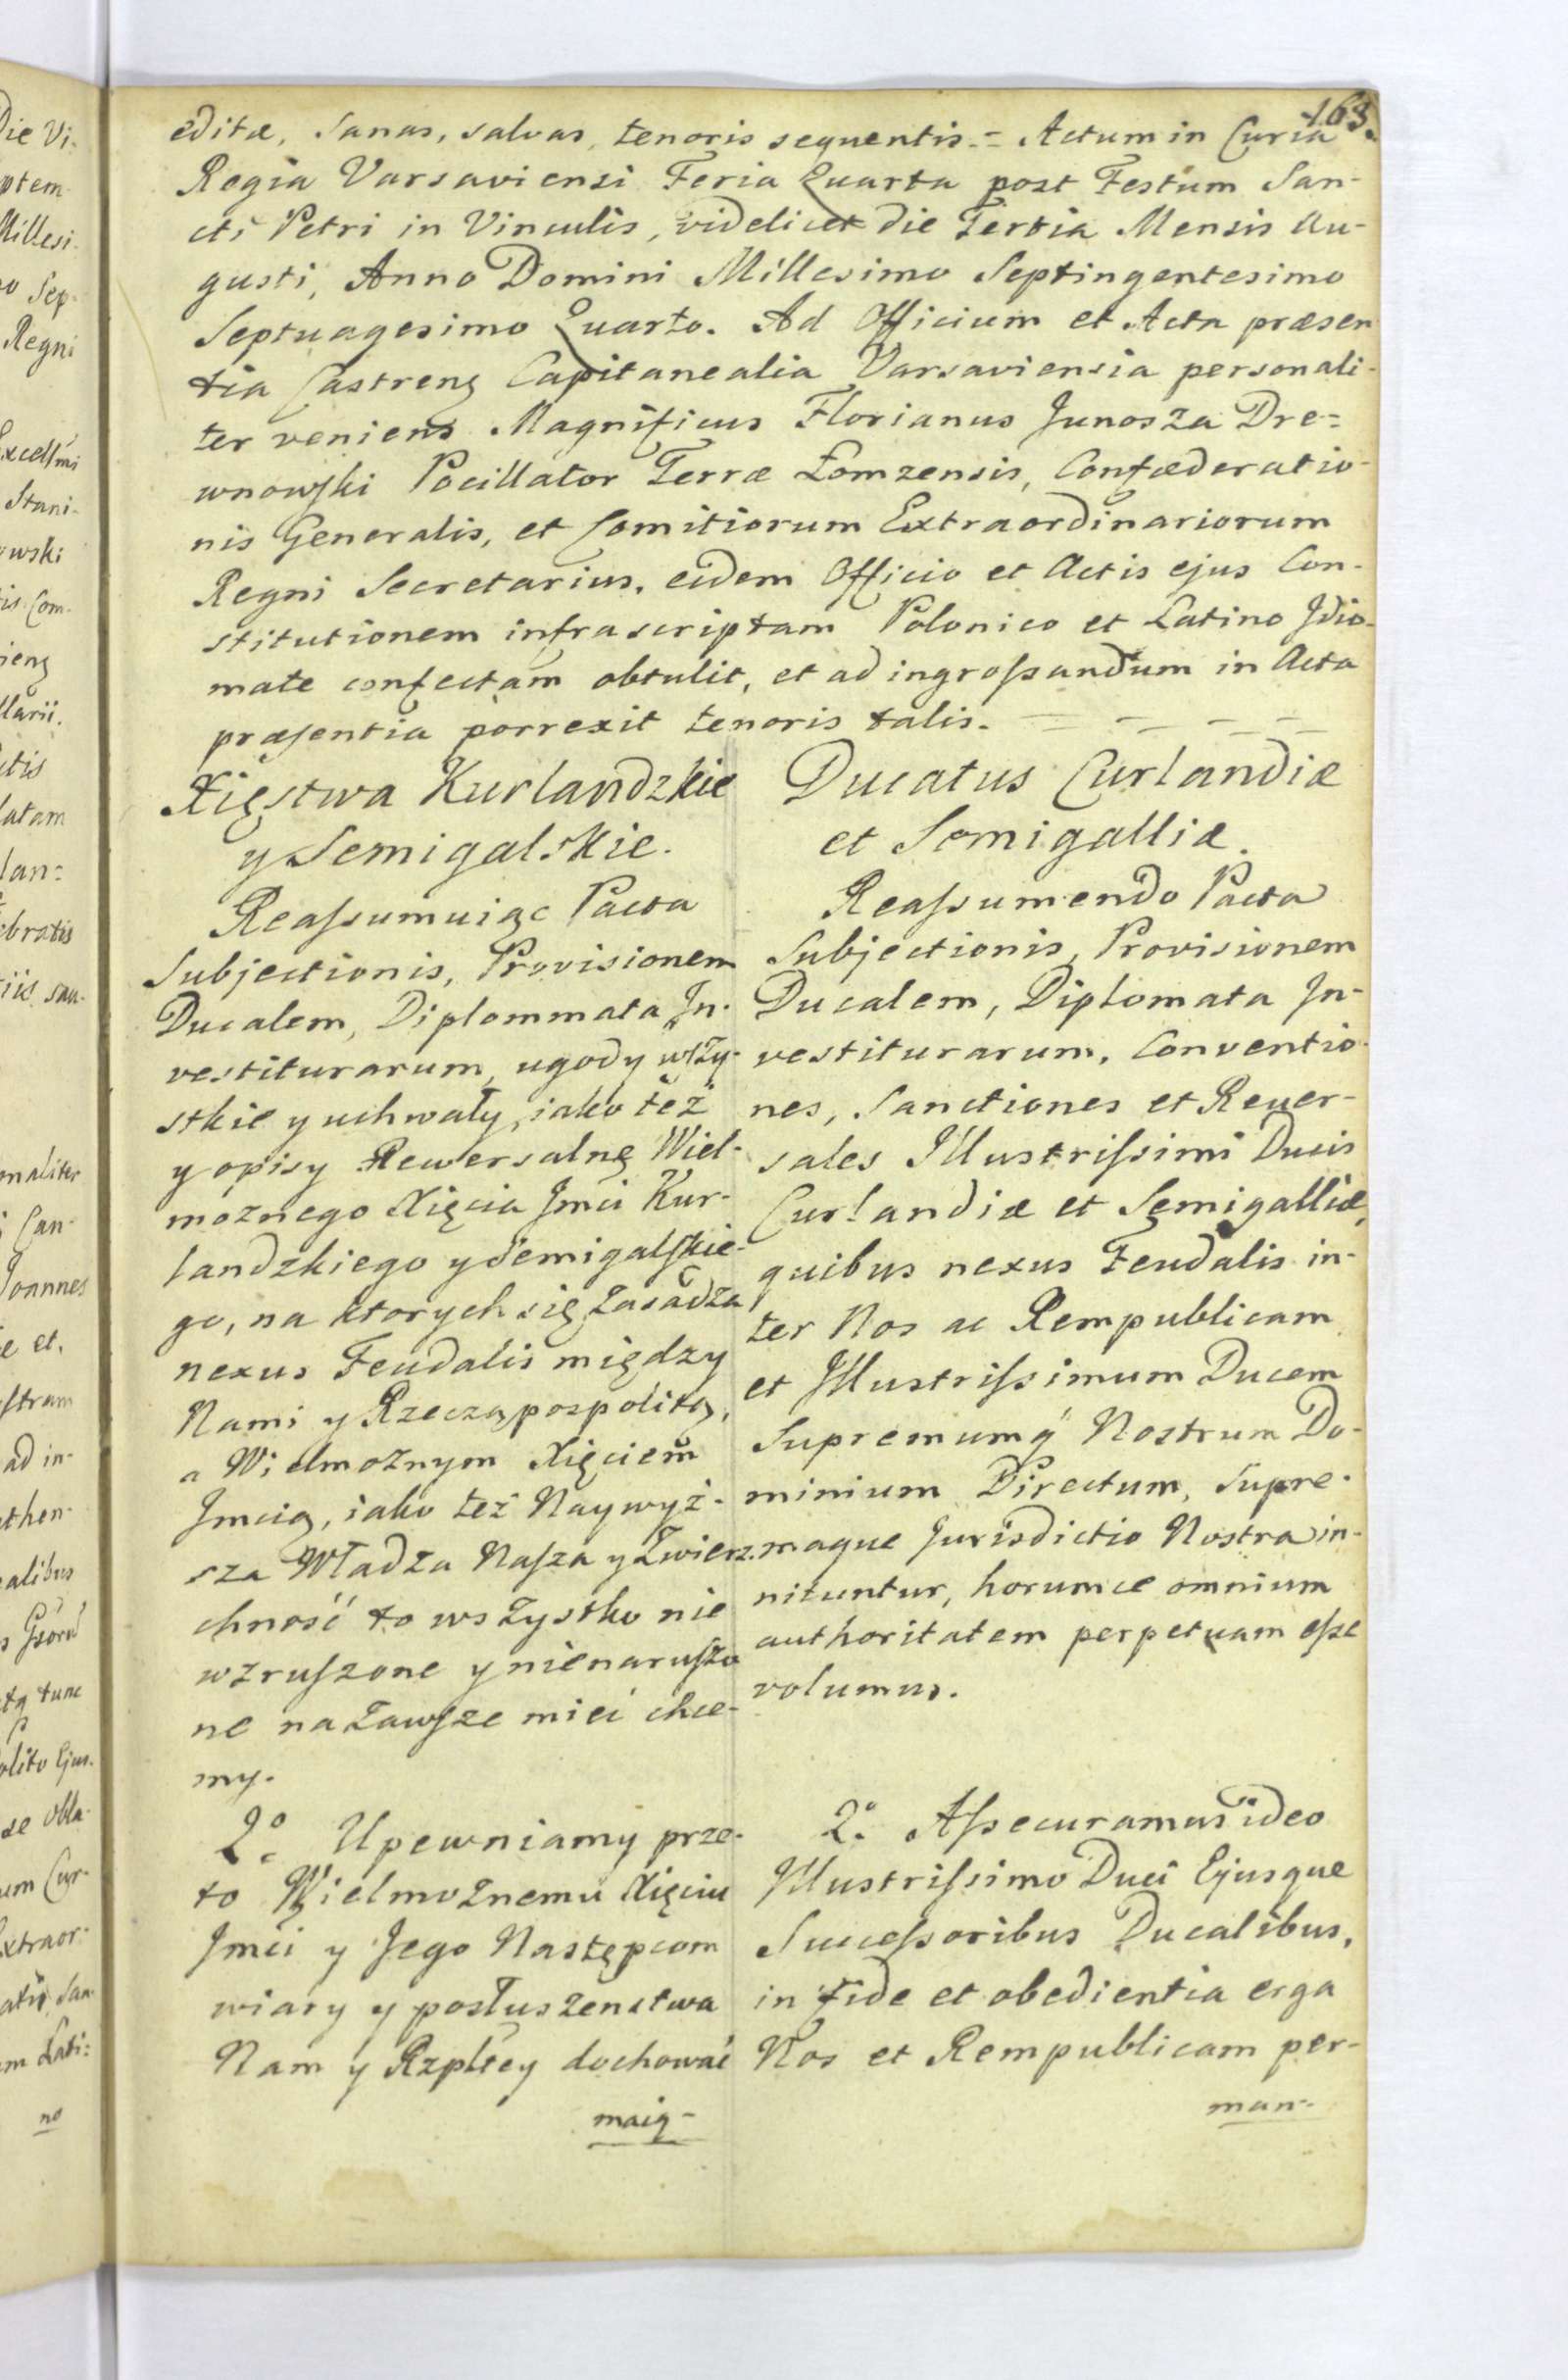 163.
editæ, sanas, salvas, tenoris sequentis.= Actum in Curia
Regia Varsaviensi Feria Quarta post Festum San-
cti Petri in Vinculis, videlicet die Tertia Mensis Au-
gusti, Anno Domini Millesimo Septingentesimo
Septuagesimo Quarto. Ad Officium et Acta præsen
tia Castreng Capitanealia Varsaviensia personali-
ter veniens Magnificus Florianus Junosza Dre=
wnowſki Pocillator Terræ Łomzensis, Confæderatio-
nis Generalis, et Comitiorum Extraordinariorum
Regni Secretarius, eidem Officio et Actis ejus Con-
stitutionem infrascriptam Polonico et Latino Jdio-
mate confectam obtulit, et ad ingroſsandum in Acta
præſentia porrexit tenoris talis. — — — —
Xięstwa Kurlandzkie
y Semigalskie.
Reaſsumuiąc Pacta
Subjectionis, Provisionem
Ducalem, Diplommata Jn-
vestiturarum, ugody wſzy-
stkie y uchwały, iako też
y opisy Rewersalnę Wiel-
możnego Xięcia Jmci Kur-
landzkiego y Semigalſkie-
go, na ktorych się zasadza
nexus Feudalis między
Nami y Rzecząpospolitą,
a Wielmożnym Xięciem
Jmcią, iako też Naywyż-
sza Władza Naſza y Zwierz-
chność to wszystko nie
wzruſzone y nienaruſzo
ne na zawſze mieć chce-
my.
2º Upewniamy prze-
to Wielmożnemu Xięciu
Jmci y Jego Następcom
wiary y posłuszenstwa
Nam y Rzpłtey dochować
maią-
Ducatus Curlandiæ
et Semigalliæ.
Reaſsumendo Pacta
Subjectionis, Provisionem
Ducalem, Diplomata Jn-
vestiturarum, Conventio-
nes, Sanctiones et Rever-
sales Jllustriſsimi Ducis
Curlandiæ et Semigalliæ,
quibus nexus Feudalis in-
ter Nos ac Rempublicam
et Jllustriſsimum Ducem
Supremumq́ Nostrum Do-
minium Directum, Supre-
maque Jurisdictio Nostra in-
nituntur, horumce omnium
authoritatem perpetuam eſse
volumus.
2º. Aſsecuramus ideo
Jllustriſsimo Duci Ejusque
Succeſsoribus Ducalibus,
in fide et obedientia erga
Nos et Rempublicam per-
man-